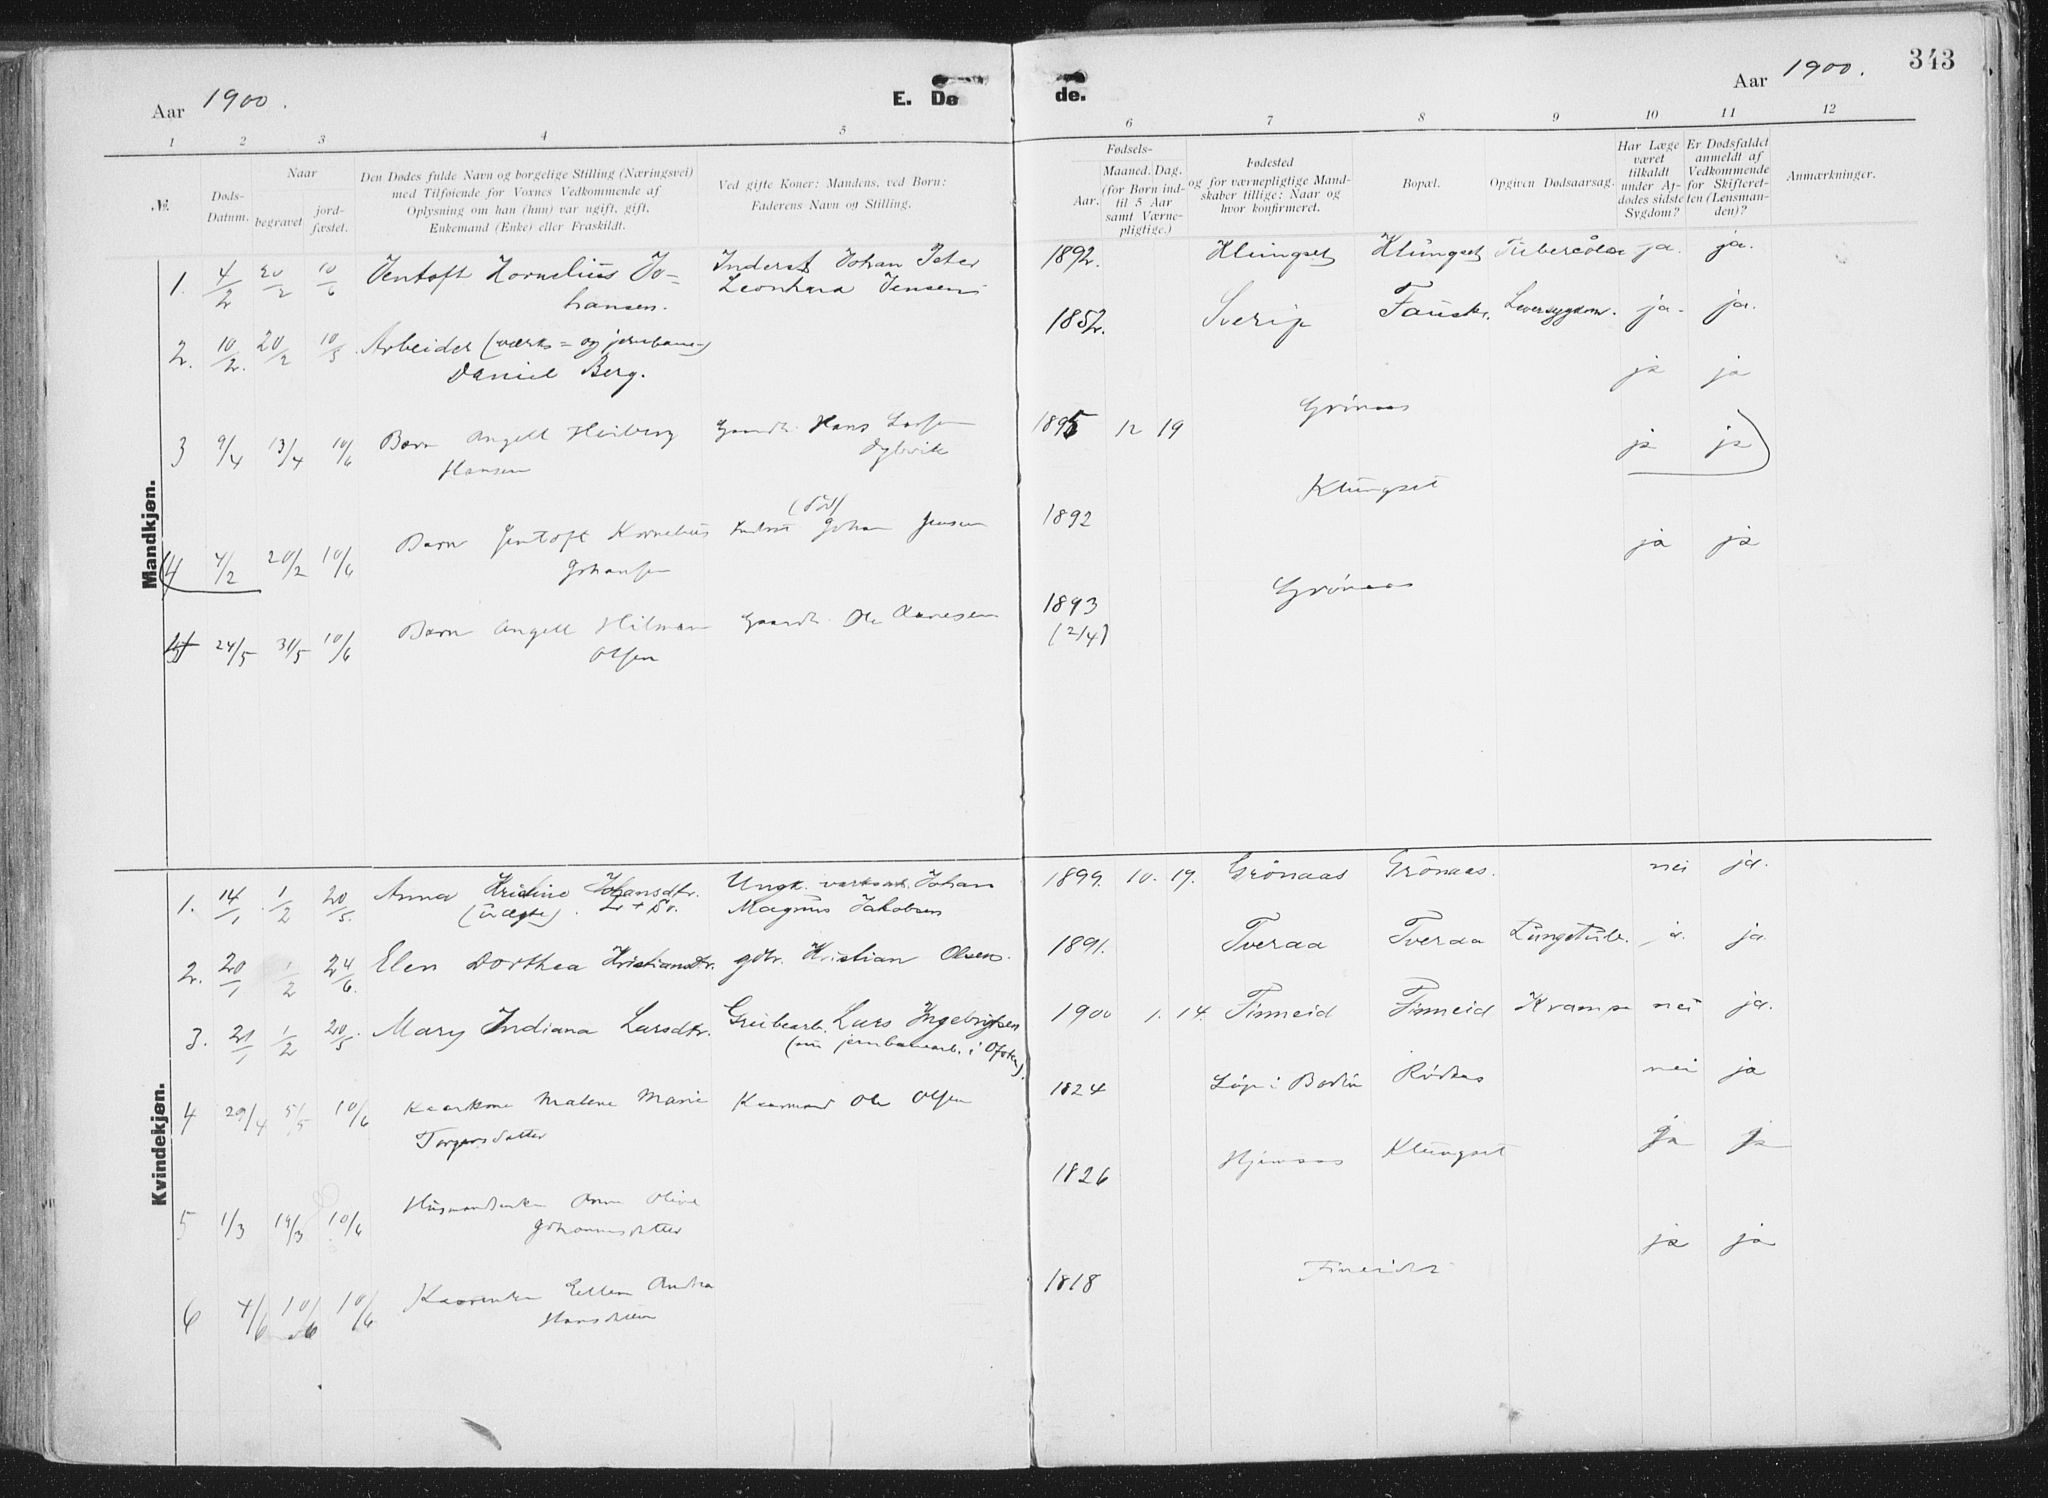 Aar 1900.
E. De de.
Aar 1900.
343
1 2 3 4 5 6 7 8 9 10 11 12
№.
Døds-Datum.
Naar
begravet
jord-fæstet.
Den Dødes fulde Navn og borgelige Stilling (Næringsvei)
med Tilføiende for Voxnes Vedkommende af
Oplysning om han (hun) var ugift, gift,
Enkemand (Enke) eller Fraskildt.
Ved gifte Koner: Mandens, ved Børn:
Faderens Navn og Stilling.
Fødsels-
Aar.
Maaned. Dag.
(for Børn ind-
til 5 Aar
samt Værne-
pligtige.)
Fødested
og for værnepligtige Mand-
skaber tillige: Naar og
hvor konfirmeret.
Bopæl.
Opgiven Dødsaarsag.
Har Læge
været
tilkaldt
under Af-
dødes sidste
Sygdom?
Er Dødsfaldet
anmeldt af
Vedkommende
for Skifteret-
ten (Lensman-
den)?
Anmærkninger.
Mandkjøn.
1. 4/2 20/2 10/6 Jentoft Kornelius Jo= Inderst Johan Peter 1892. Klungset Klungset ja. ja.
hansen. Leonhard Jensen
2. 10/2. 20/2 Arbeider (værks= og jernbane) 1852. Sverip Fauske. Leversygdom. ja. ja.
Daniel Berg.
3 9/4 13/4 10/6 Barn Angell Heiberg Gaardb. Hans Larsen 1895 12 19 Grönaas ja ja
Hansen Dybvik
4 4/2 20/2 10/6 Barn Jentoft Kornelius Inderst Johan Jensen 1892 Klungset ja ja
Johansen (död)
24/5 31/5 10/6 Barn Angell Hilman Gaardb. Ole 1893 Grönaas ja ja
Olsen (2/4)
Kvindekjøn.
1. 14/1 1/2 20/5. Anna Kristine Johansdtr. Ungk. Johan 1899. 10. 19. Grönaas Grönaas. nei ja.
(uægte). Magnus Jakobsen
2. 20/1 1/2 24/6. Elen Dorthea Kristiansdtr. gdbr. Kristian Olsen. 1891. Tveraa Tveraa Lungetub. ja. ja
3. 21/1 1/2 20/5. Mary Indiana Larsdtr. Grubearb. Lars Ingebrigtsen 1900 1. 14. Finneid Finneid Krampe nei ja.
(nu jernbanearb. i Ofoten).
4 29/4 5/5 10/6 Kaarkone Malene Marie Kaarmand Ole Olsen 1824 i Bodin Rödaas nei ja
Torgersdatter
5 1/3 19/3 10/6 Husmandsenke Anne Oline 1826 Klungset ja ja
Johannesdatter
6 4/6 10/6 10/6 Kaarenke Ellen Andrea 1818 Fineidet ja ja
Hansdatter